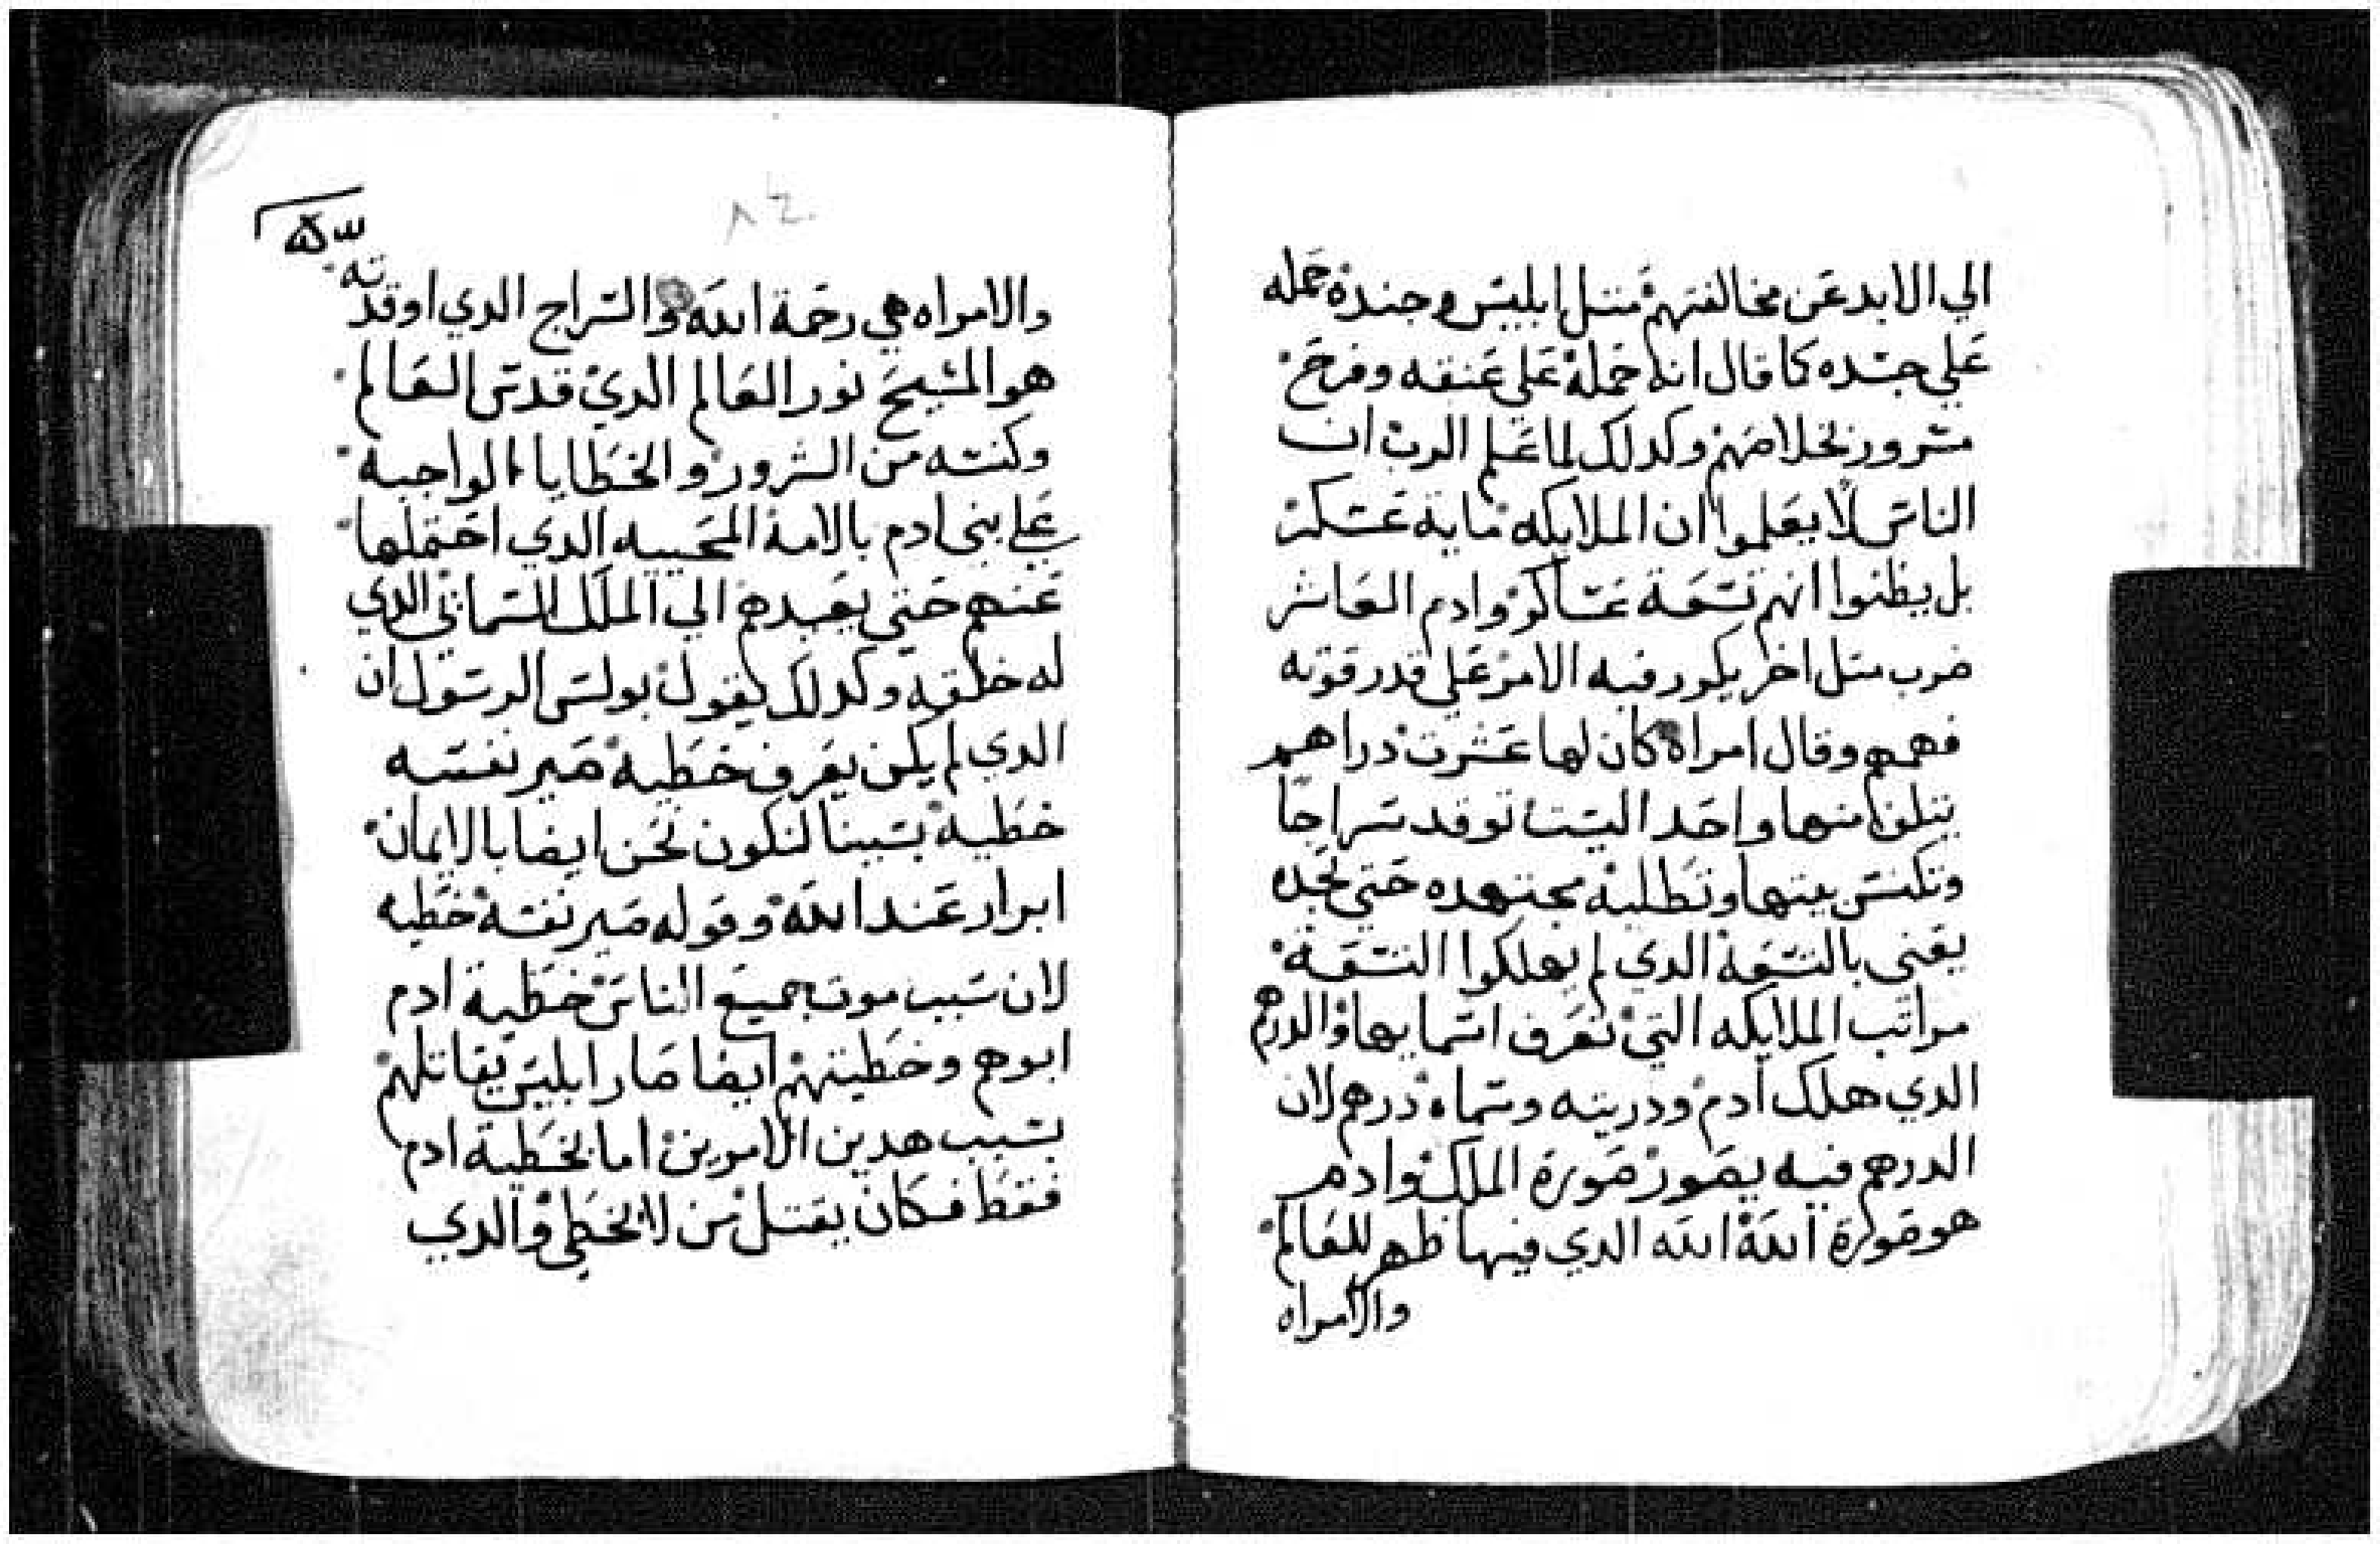 الي الابد عن مخالفتهم متل ابليس وجنده حمله
علي جسده كما قال انه حمله علي عنقه وفرح
مسرور بخلاصهم وكدلك لما علم الرب ان
الناس لا يعلموا ان الملايكه ماية عسكر
بل يظنوا انهم تسعة عساكر وادم العاشر
ضرب متل اخر يكور فيه الامر علي قدر قوته
فهمهم وقال امراه كان لها عشرت دراهم
يتلف منها واحد اليست توقد سراجا
وتكنس بيتها وتطلبه مجتهده حتي تجده
يعني بالتسعة الدي لم يهلكوا التسعة
مراتب الملايكه التي نعرف اسمايها والدرهم
الدي هلك ادم ودريته وسماه درهم لان
الدرهم فيه يصور صورة الملك وادم
هو صورة الله الله الدي فيها ظهر للعالم
والامراه
٨٤
والامراه هي رحمة الله والسراج الدي اوقدته
هو المسيح نور العالم الدي قدس العالم
وكنسه من الشرور والخطايا الواجبة
علي بني ادم بالامة المحييه الدي احتملها
عنهم حتي يعيدهم الي الملك السماني الدي
له خلقه وكدلك يقول بولس الرسول ان
الدي لم يكن يعرف خطية صير نفسه
خطية بسببنا لنكون نحن ايضا بالايمان
ابرار عند الله وقوله صير نفسه خطيه
لان سبب موت جميع الناس خطية ادم
ابوهم وخطيتهم ايضا صار ابليس يقاتلهم
بسبب هدين الامرين اما بخطية ادم
فقط فكان يقتل من لا يخطي والدي